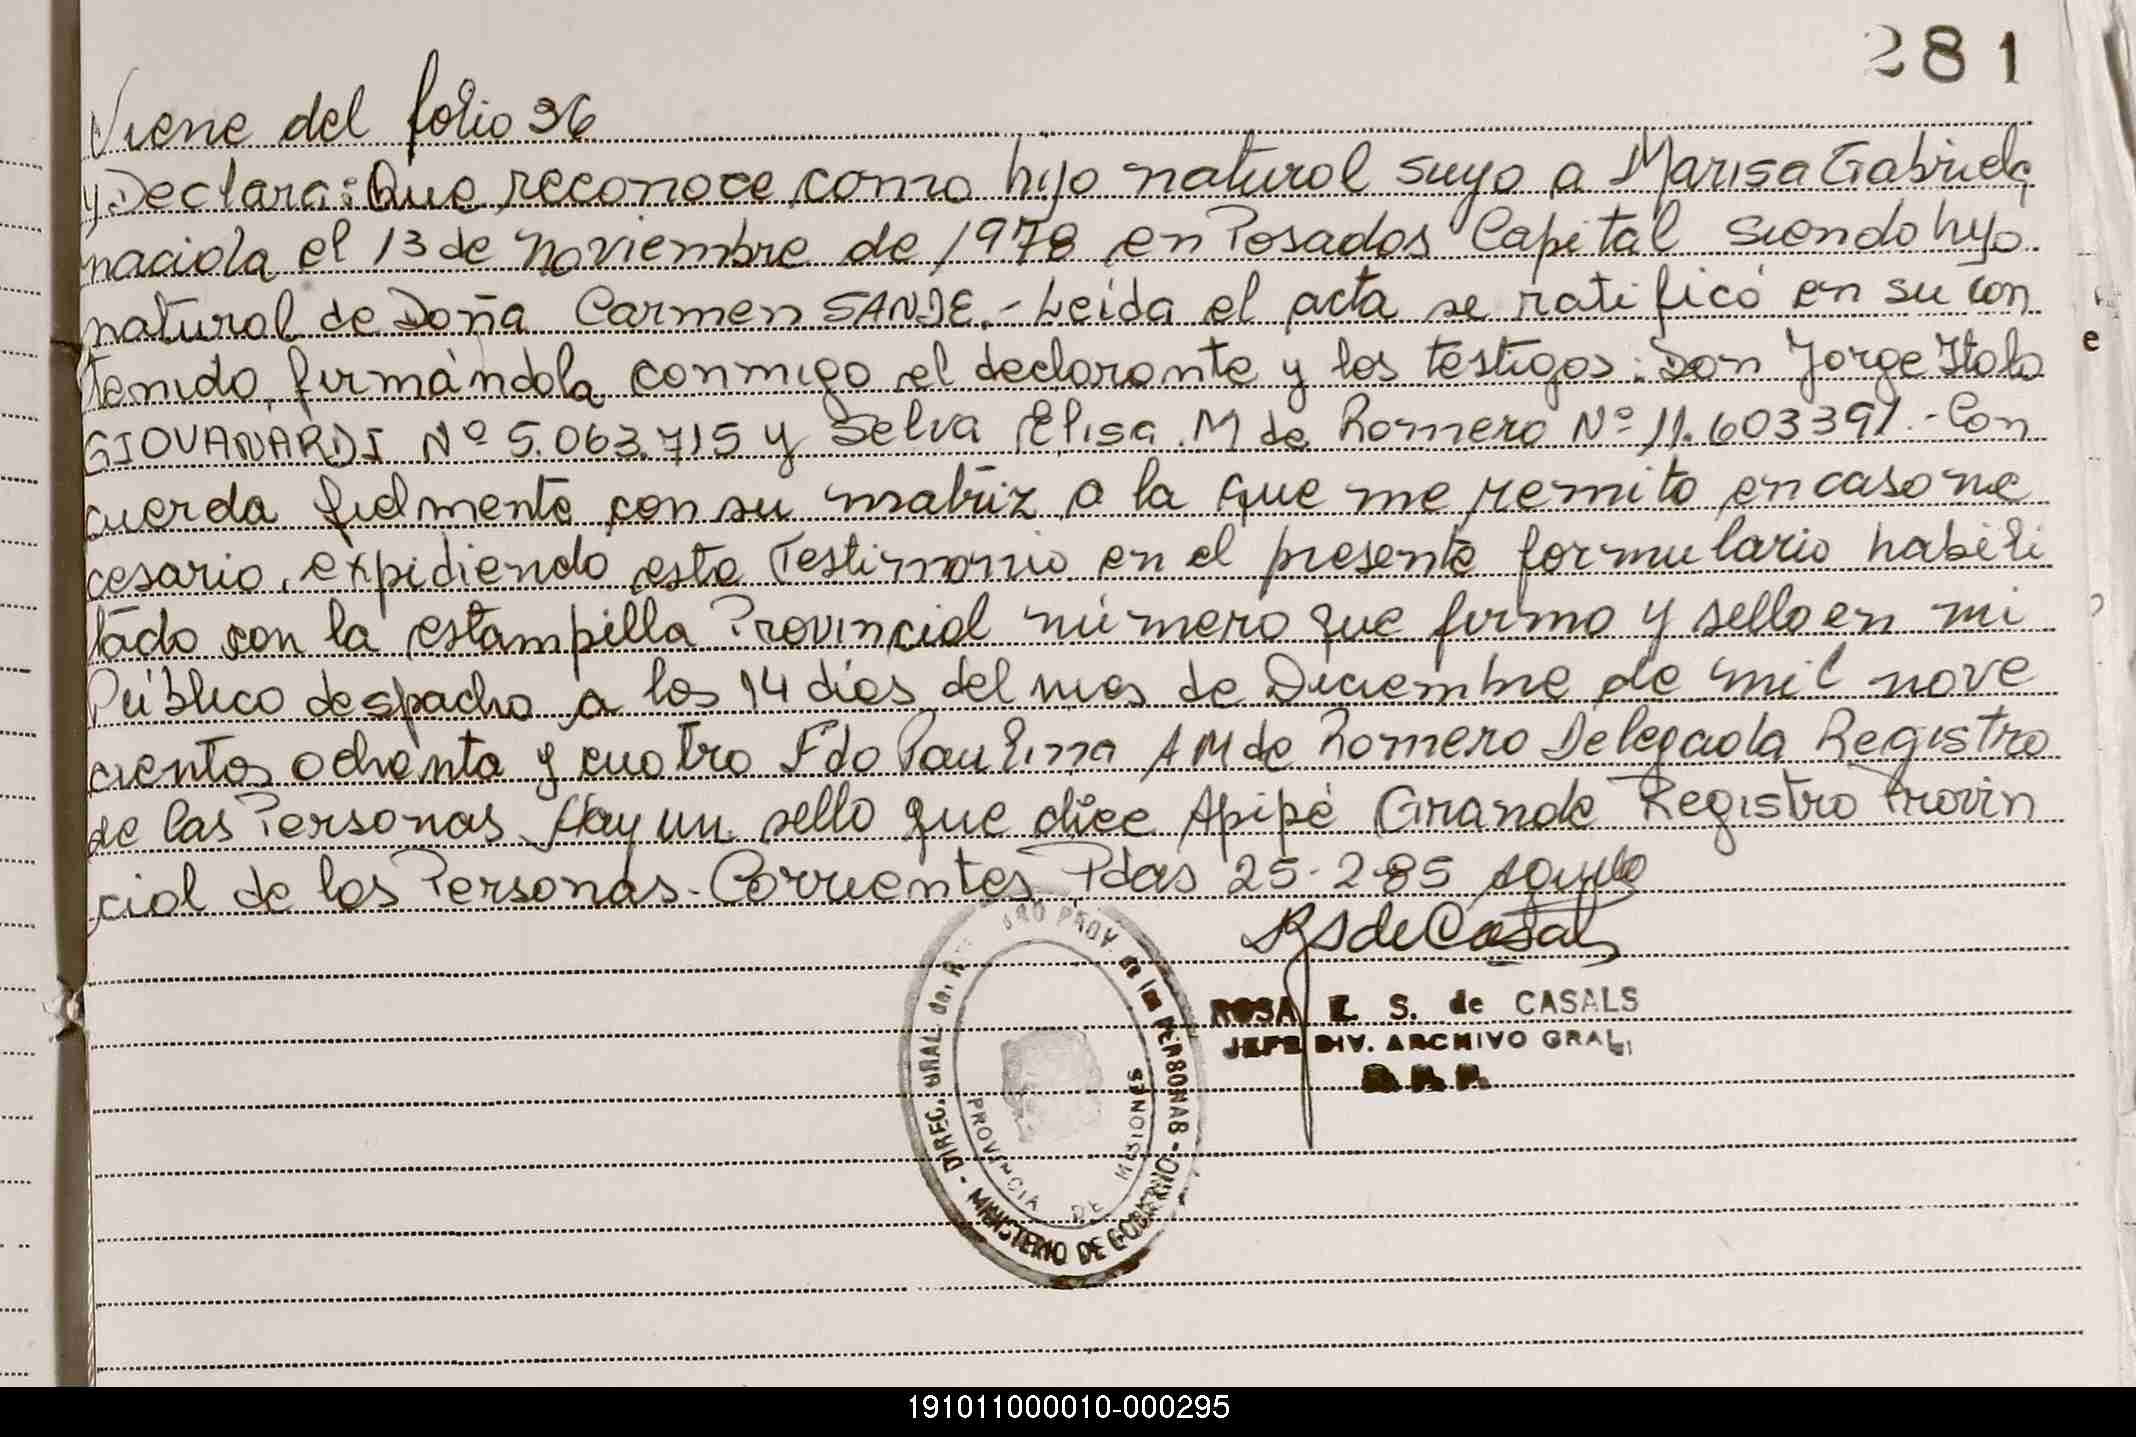 281
Viene del folio 36
y Declara: Que reconoce como hijo natural suyo a Marisa Gabriela,
nacida el 13 de Noviembre de 1978 en Posadas Capital siendo hija
natural de Doña Carmen SANDE.- Leida el acta se ratificó en su con
tenido, firmándola conmigo el declarante y los testigos: Don Jorge Italo
GIOVANARDI Nº 5.063.715 y Selva Elisa M de Romero Nº 11.603391.- Con
cuerda fielmente con su matriz a la que me remito en caso ne
cesario, expidiendo este Testimonio en el presente formulario habili
tado con la estampilla Provincial número que firmo y sello en mi
Público despacho a los 14 dias del mes de Diciembre de mil nove
cientos ochenta y cuatro Fdo Paulina A M de Romero Delegada Registro
de las Personas. Hay un sello que dice Apipé Grande Registro Provin
cial de las Personas. Corrientes Pdas 25-2-85
RS de Casals
ROSA E. S. de CASALS
JEFE DIV. ARCHIVO GRAL.
DIREC. GRAL. del PROV de las PERSONAS - MINISTERIO DE GOBIERNO -
PROVINCIA DE MISIONES
e
191011000010-000295